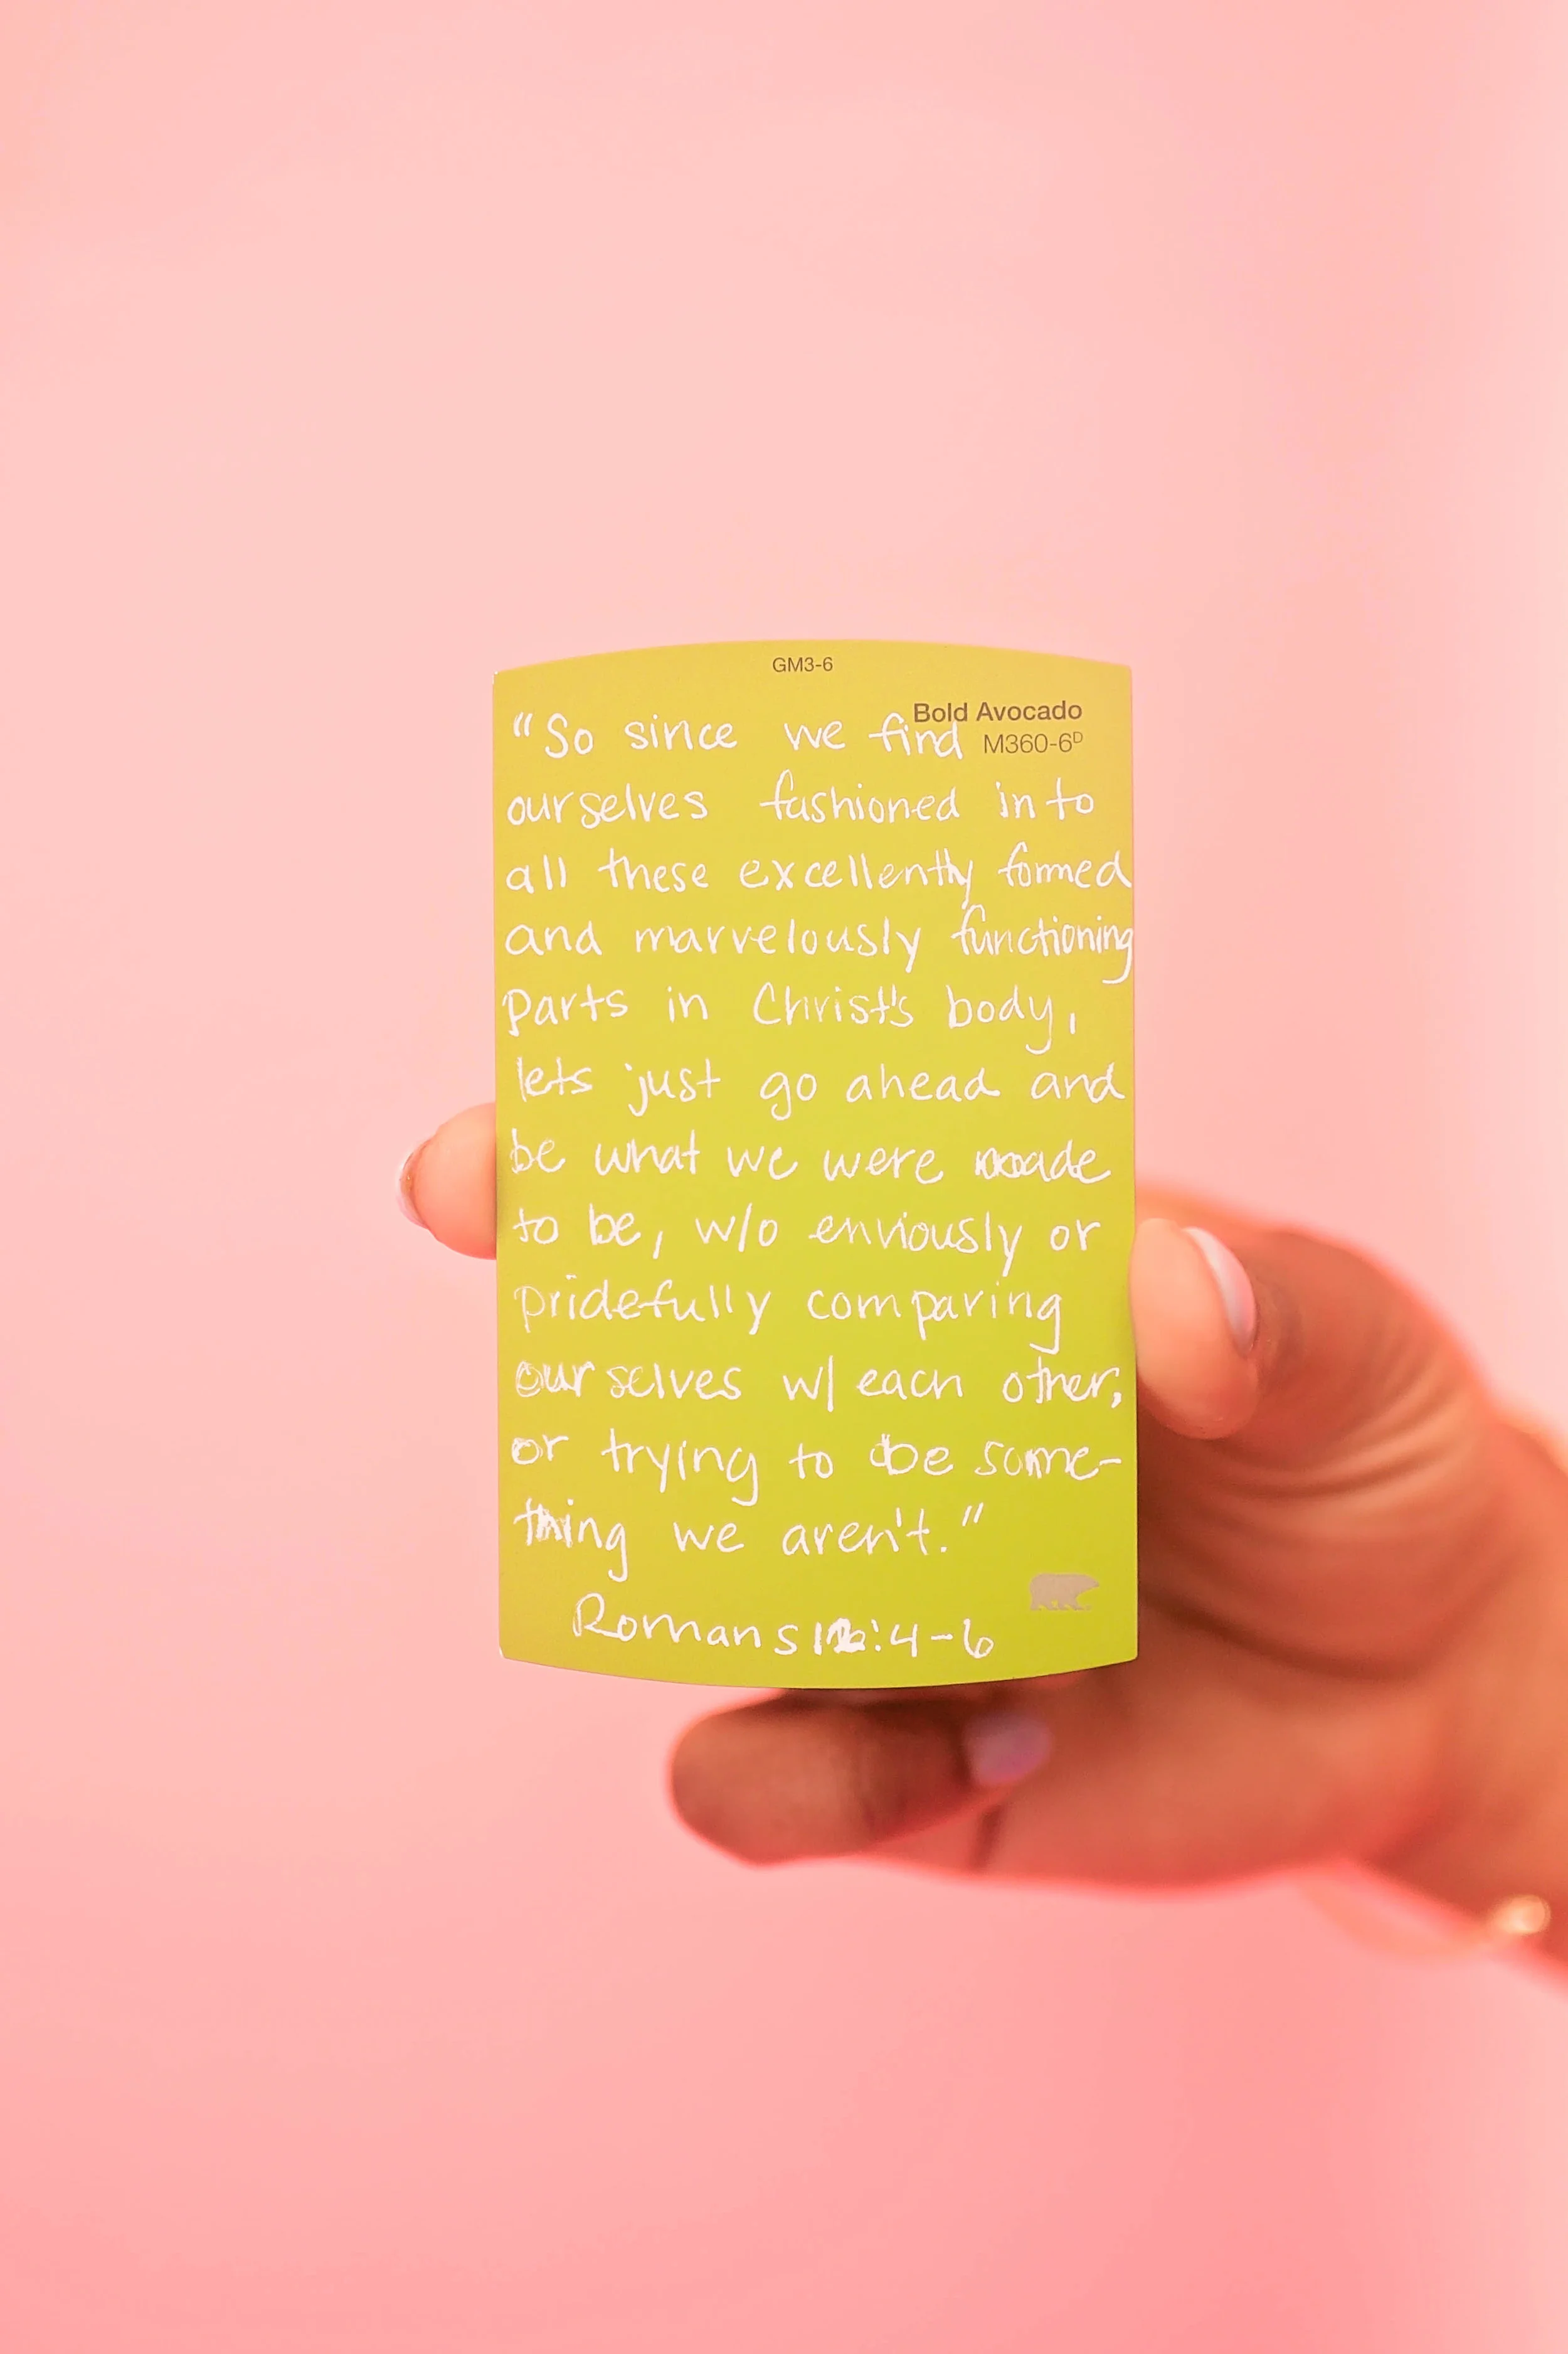 GM3-6
Bold Avocado
M360-6ᴰ
"So since we find
ourselves fashioned into
all these excellently formed
and marvelously functioning
parts in Christ's body,
lets just go ahead and
be what we were made
to be, w/o enviously or
pridefully comparing
ourselves w/ each other,
or trying to be some-
thing we aren't."
Romans 12:4-6